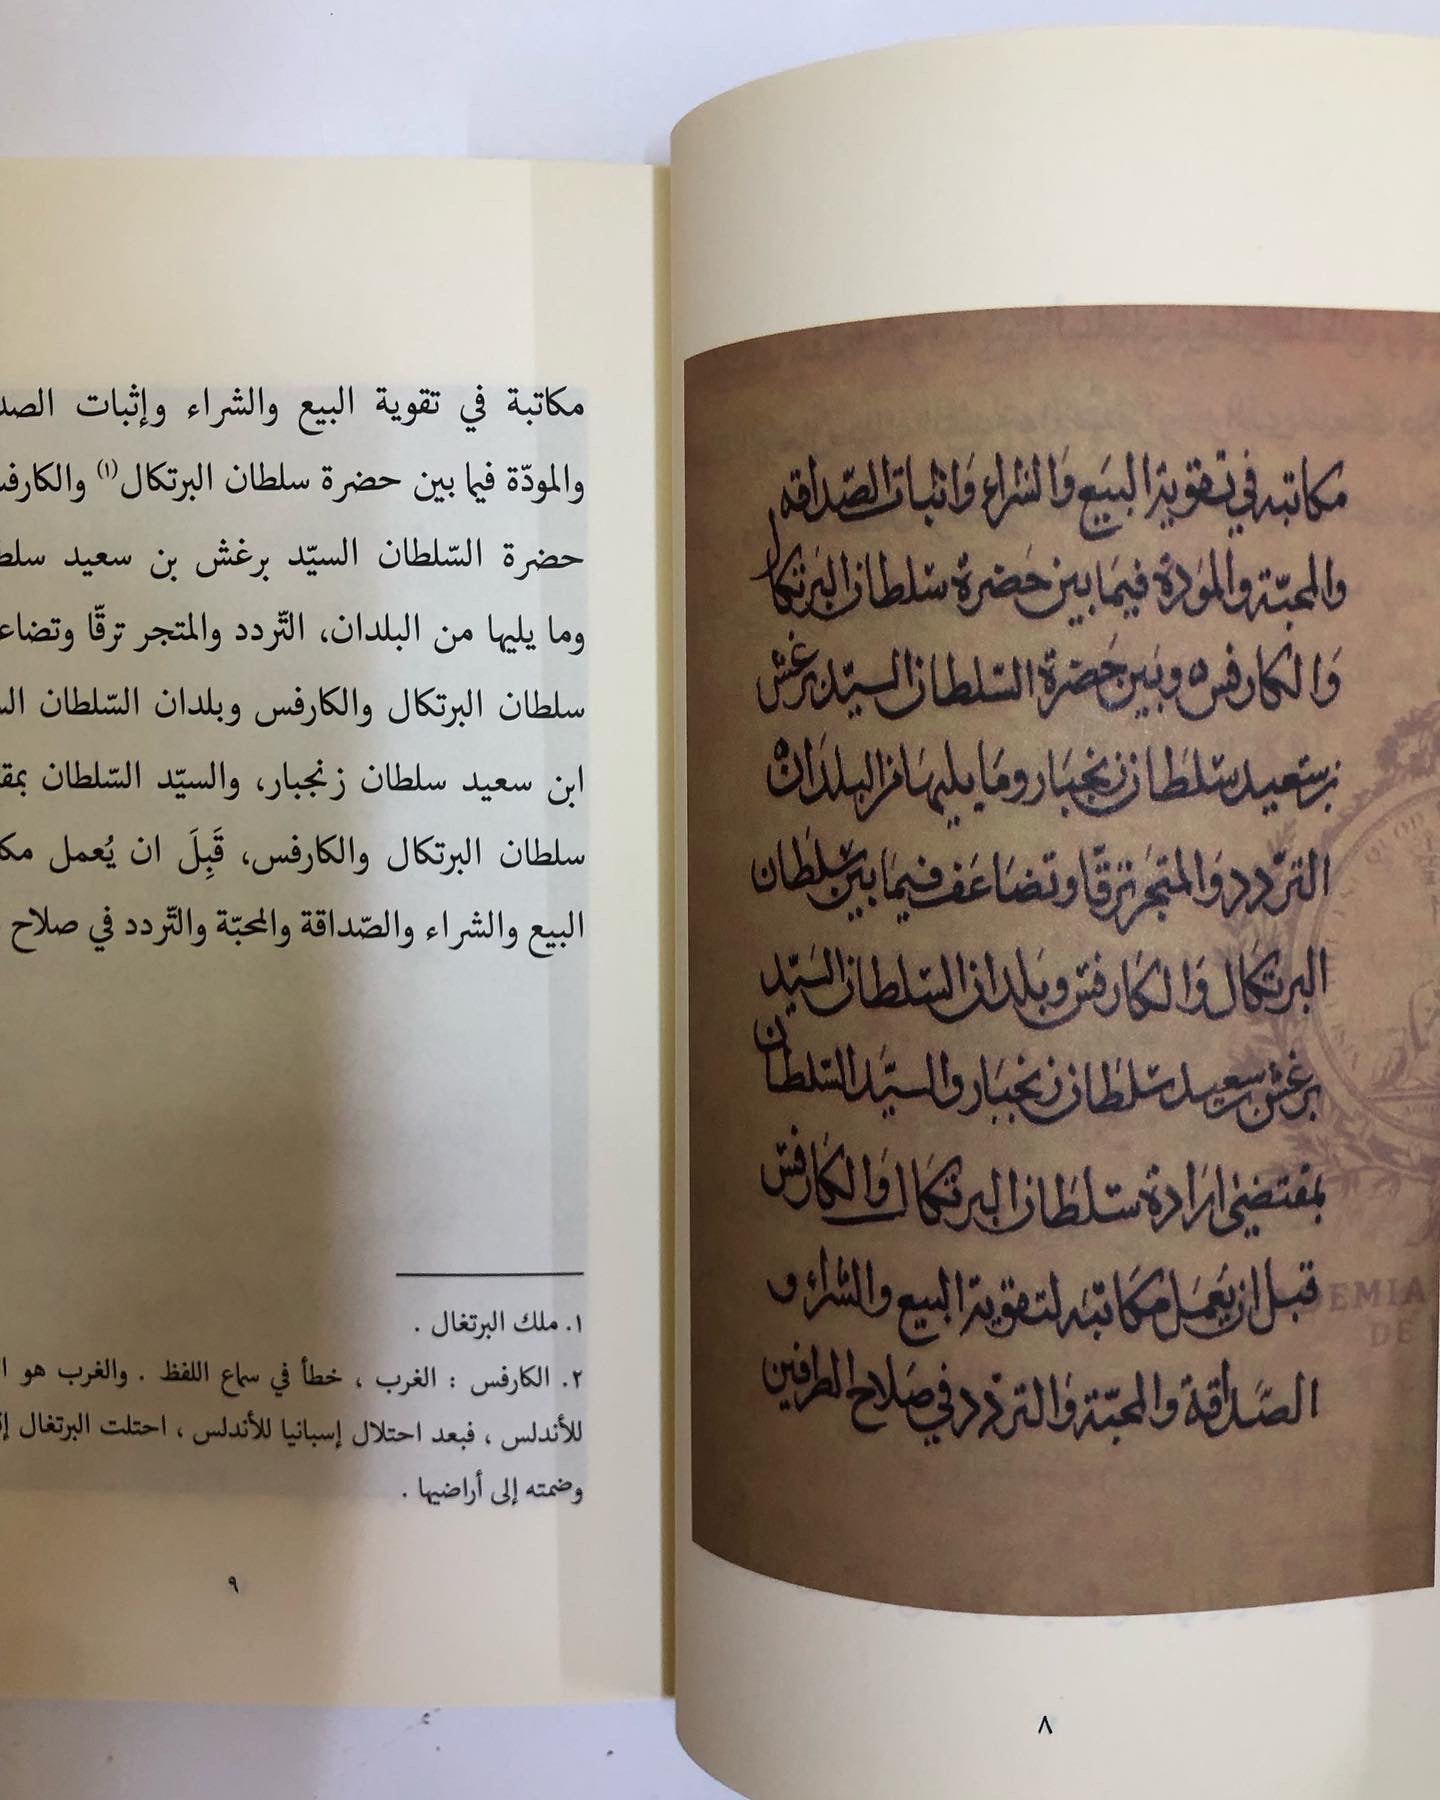 مكاتبه في تقوية البيع والشراء واثبات الصّداقه
والمحبّة والمودة فيما بين حضرة سلطان البرتكال
والكارفس وبين حضرة السّلطان السيّد برغش
بن سعيد سلطان زنجبار وما يليها من البلدان
التّردد والمتجر ترقّا وتضاعف فيما بين سلطان
البرتكال والكارفس وبلدان السّلطان السيّد
برغش بن سعيد سلطان زنجبار والسيّد السّلطان
بمقتضى ارادة سلطان البرتكال والكارفس
قبل ان يعمل مكاتبه لتقوية البيع والشراء و
الصّداقة والمحبّة والتردد في صلاح الطرفين
٨
مكاتبة في تقوية البيع والشراء وإثبات
والمودّة فيما بين حضرة سلطان البرتكال(١)
حضرة السّلطان السيّد برغش بن سعيد
وما يليها من البلدان، التّردد والمتجر ترقّا
سلطان البرتكال والكارفس وبلدان السّلطان
ابن سعيد سلطان زنجبار، والسيّد السّلطان
سلطان البرتكال والكارفس، قَبِلَ ان يُعمل
البيع والشراء والصّداقة والمحبّة والتّردد في صلاح
١. ملك البرتغال .
٢. الكارفس : الغرب ، خطأ في سماع اللفظ . والغرب هو
للأندلس ، فبعد احتلال إسبانيا للأندلس ، احتلت البرتغال
وضمته إلى أراضيها .
٩